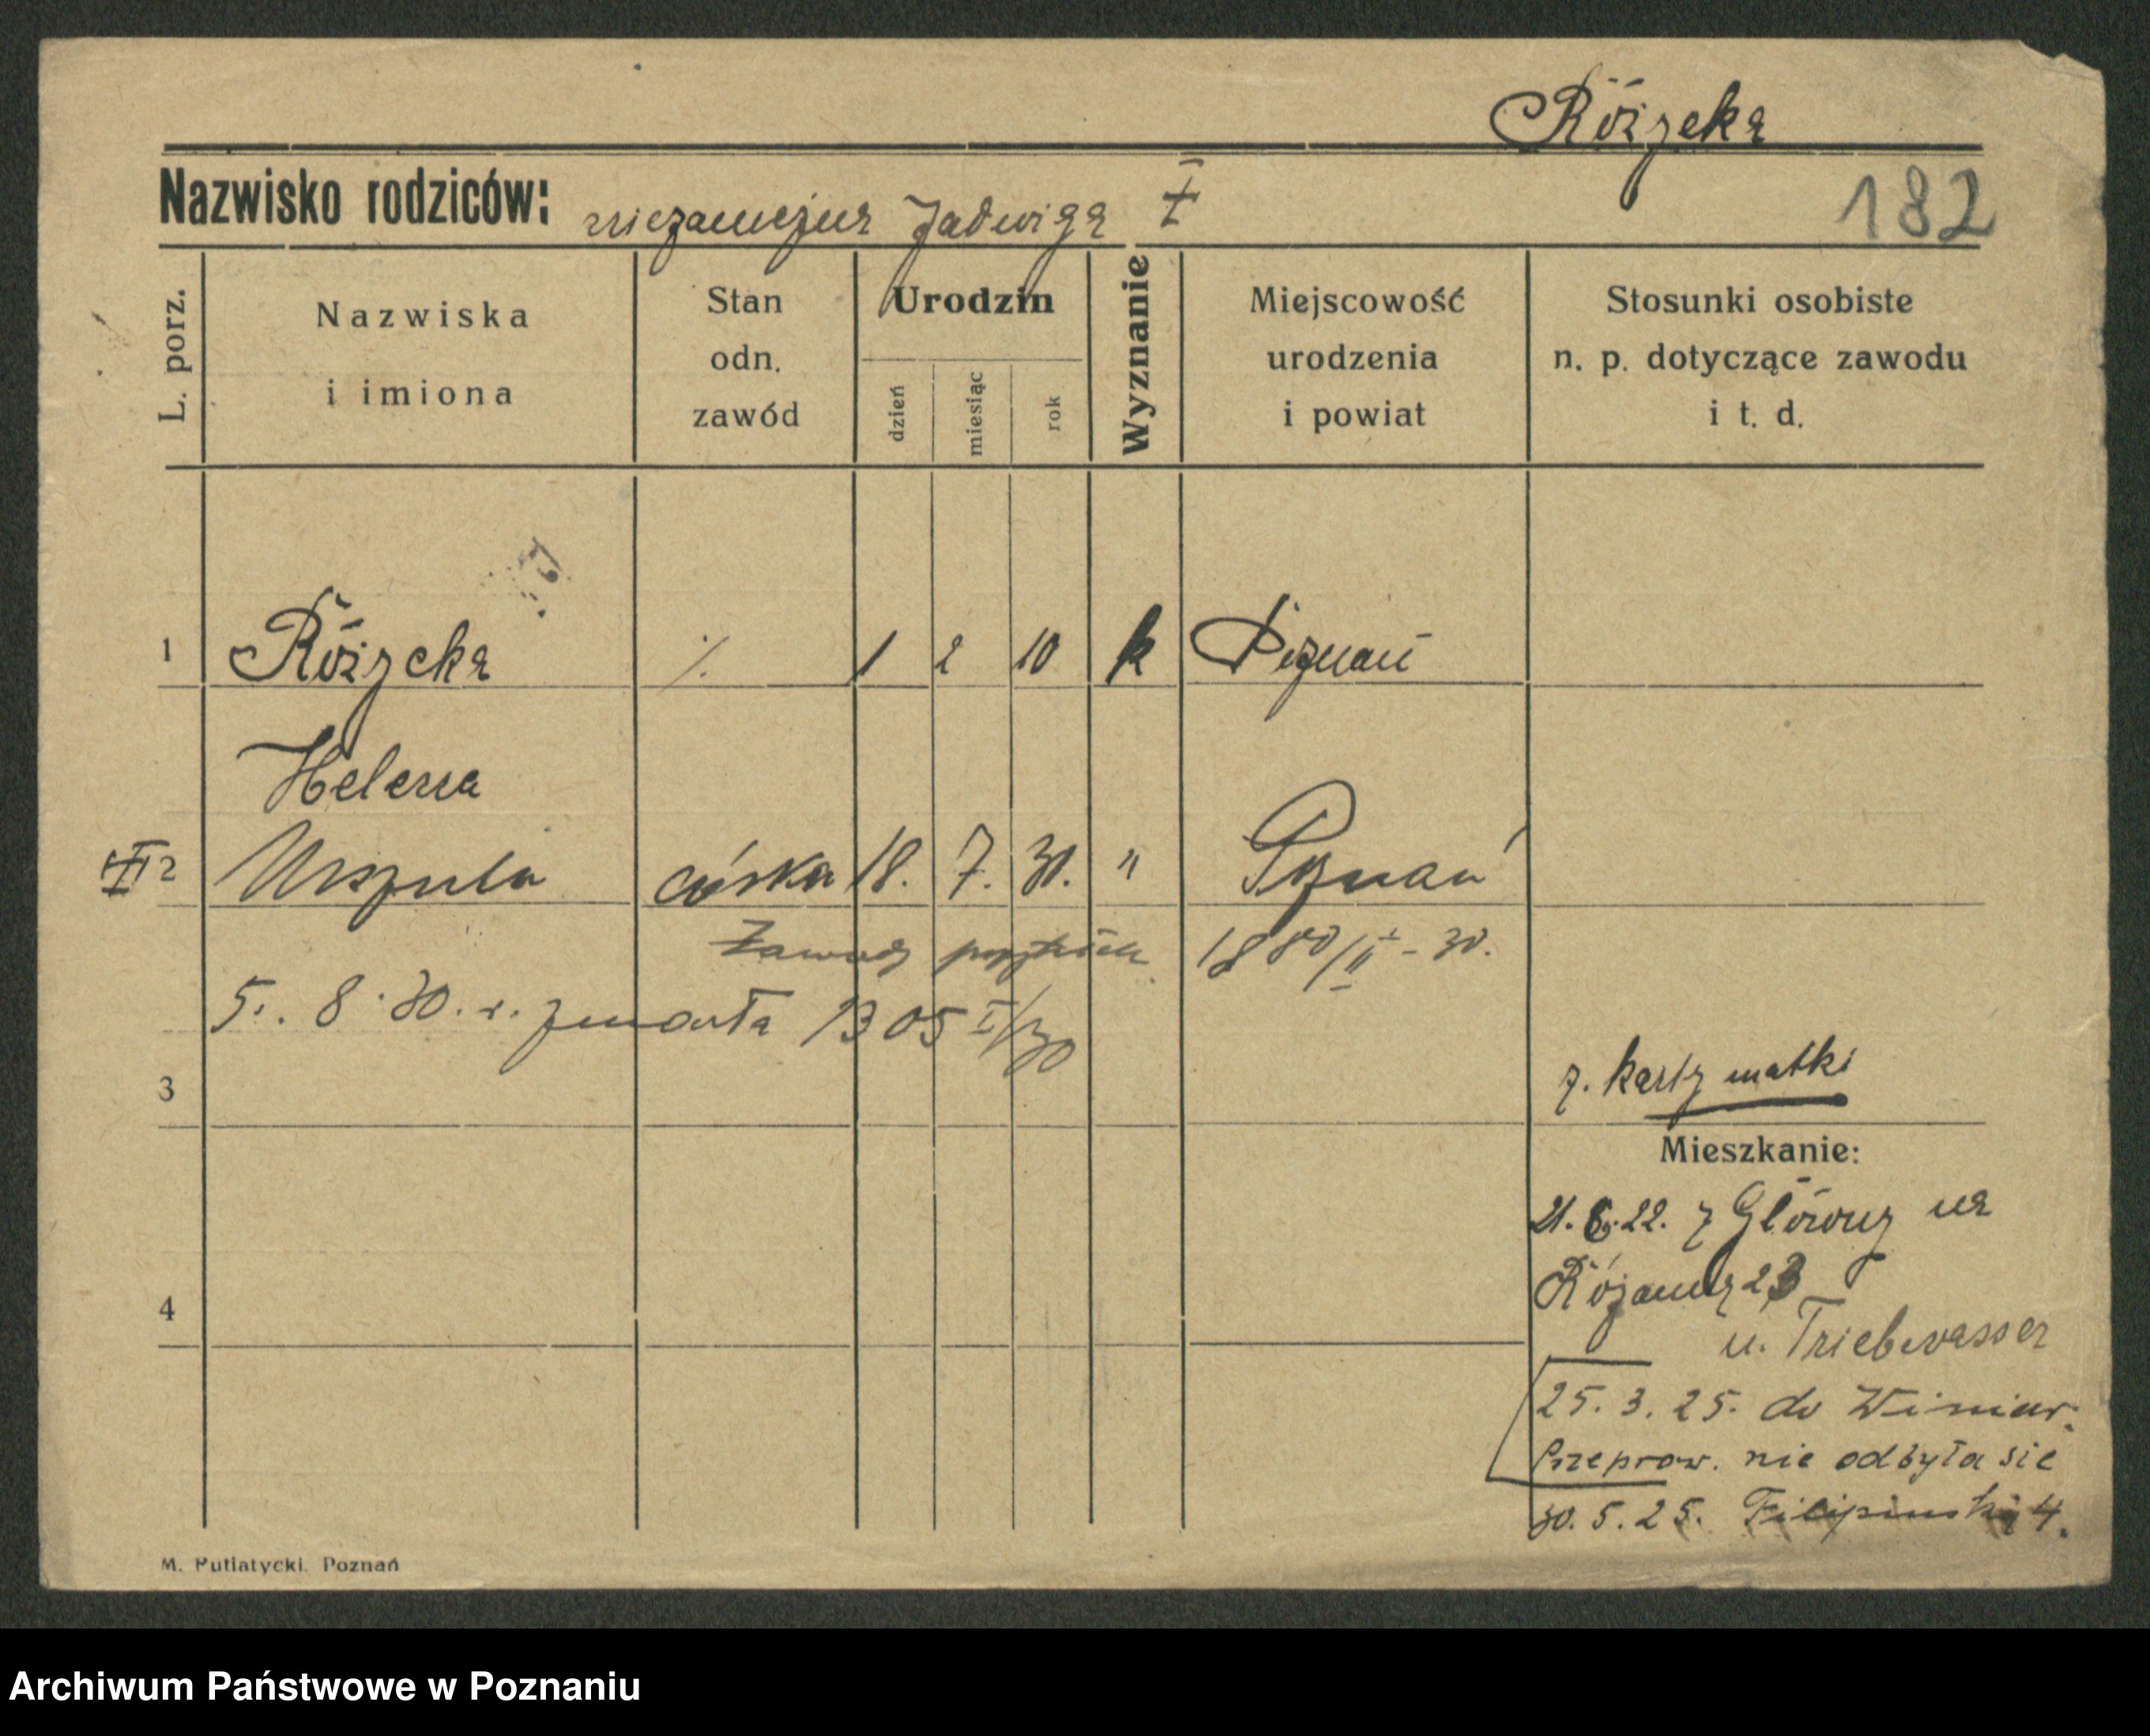 Różczka
Nazwisko rodziców: niezamężna Jadwiga
182
L. porz.
Nazwiska
i imiona
Stan
odn.
zawód
Urodzin
dzień
miesiąc
rok
Wyznanie
Miejscowość
urodzenia
i powiat
Stosunki osobiste
n. p. dotyczące zawodu
i t. d.
1 Różczka ./. 1 2 10 k Poznań
Helena
2 Urszula córka 18. 7. 30. " Poznań
1880/II - 30.
5. 8. 30. r. zmarła 1305 I/30
3
z. karty matki
Mieszkanie:
21. 6. 22. z Główny na
Różaną 23
u. Triebwasser
25. 3. 25. do Winiar.
Przeprow. nie odbyła się
30. 5. 25. Filipińską 4.
4
M. Putiatycki. Poznań
Archiwum Państwowe w Poznaniu